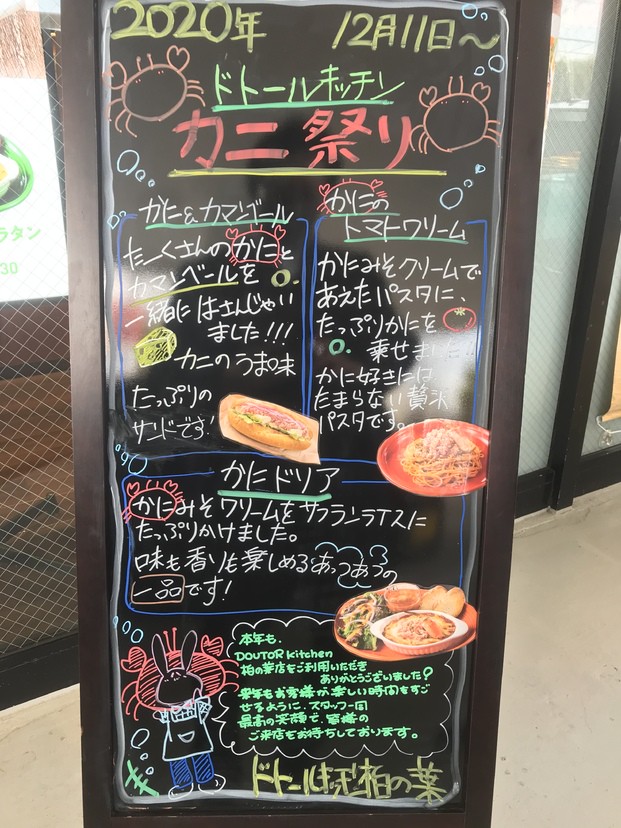 2020年 12月11日～
ドトールキッチン
カニ祭り
かに&カマンベール
たーくさんのかにと
カマンベールを
一緒にはさんじゃい
ました!!!
カニのうま味
たっぷりの
サンドです!
かにの
トマトクリーム
かにみそクリームで
あえたパスタに、
たっぷりかにを
乗せました!!
かに好きには
たまらない贅沢
パスタです。
かにドリア
かにみそクリームをサフランライスに
たっぷりかけました。
味も香りも楽しめるあつあつの
一品です!
本年も、
DOUTOR kitchen
柏の葉店をご利用いただき
ありがとうございました?
来年もお客様が楽しい時間をすご
せるように、スタッフ一同
最高の笑顔で、皆様の
ご来店をお待ちしております。
ドトールキッチン柏の葉
ラタン
30